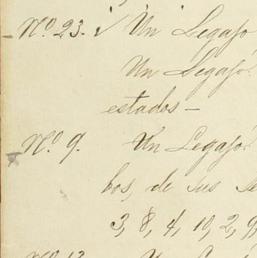 Nº 23. Un Legajo
Un Legajo
estados —
Nº 9. Un Legajo
bos, de sus
3, 8, 4, 19, 2, 9,
Nº 13.